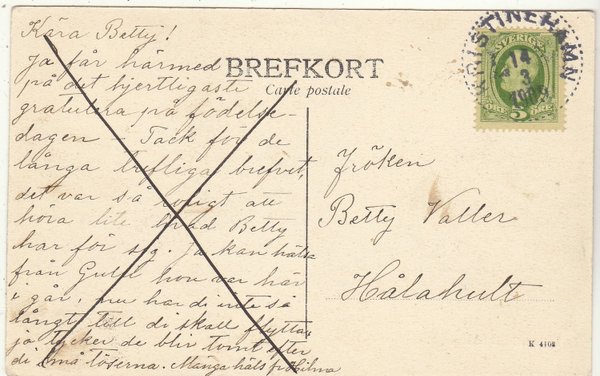 Kära Betty!
Ja får härmed
på det hjertligaste
gratulera på födelse-
dagen Tack för de
långa trefliga brefvet,
det var så roligt att
höra lite hvad Betty
har för sig. Ja kan hälsa
från Guth hon var här
i går, nu har di inte så
långt till di skall flytta
ja tycker de blir tomt efter
di små töserna. Många häls fr Hilma
BREFKORT
Carte postale
KRISTINEHAMN
14
3
SVERIGE
5 ÖRE
Fröken
Betty Valler
Hålahult
K 4102